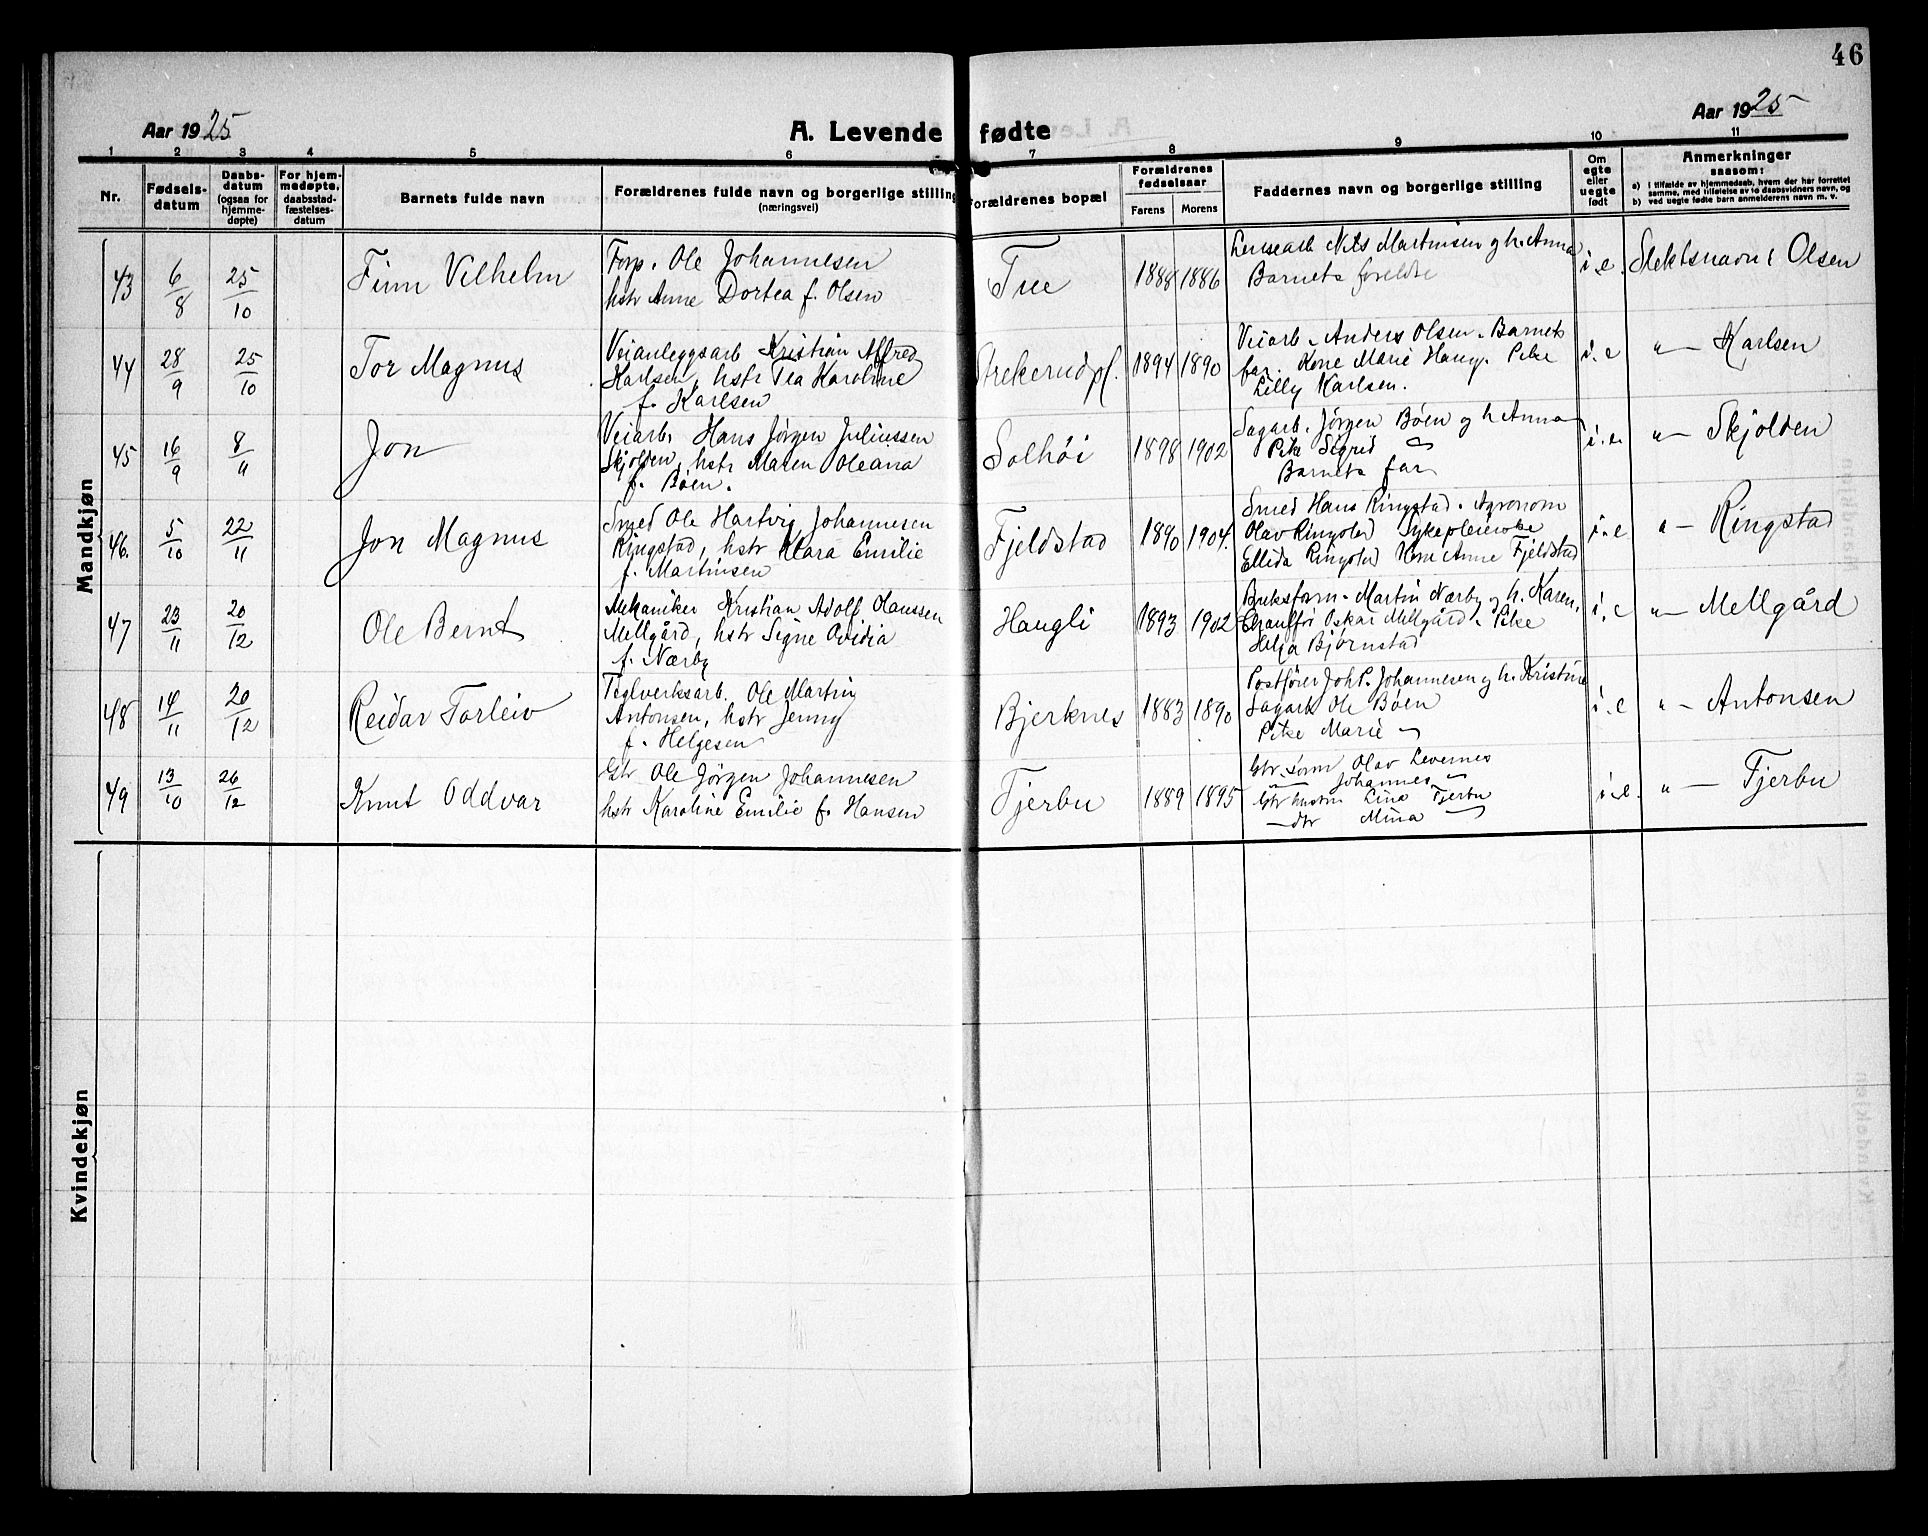 46
Aar 1925
A. Levende fødte
Aar 1925
1 2 3 4 5 6 7 8 9 10 11
Nr.
Fødsels-
datum
Daabs-
datum
(ogsaa for
hjemme-
døpte)
For hjem-
medøpte,
daabsstad-
fæstelses-
datum
Barnets fulde navn
Forældrenes fulde navn og borgerlige stilling
(næringsvei)
Forældrenes bopæl
Forældrenes
fødselsaar
Farens Morens
Faddernes navn og borgerlige stilling
Om
ægte
eller
uegte
født
Anmerkninger
saasom:
a) i tilfælde av hjemmedaab, hvem der har forrettet
samme, med tilføielse av to daabsvidners navn, og
b) ved uegte fødte barn anmelderens navn m. v.
Mandkjøn
43 6/8 25/10 Finn Vilhelm
Forp. Ole Johannesen
hstr Anne Dortea f. Olsen
Tue 1888 1886
Nils Martinsen og h. Anna
Barnets foreldre
i.e. Slektsnavn: Olsen
44 28/9 25/10 Tor Magnus
Veianleggsarb Kristian Alfred
Karlsen, hstr Tea Karoline
f. Karlsen
Strekerud pl. 1894 1890
Veiarb. Anders Olsen. Barnets
far. Kone Marie Haug. Pike
Lilly Karlsen.
i.e " — Karlsen
45 16/9 8/11 Jon
Veiarb. Hans Jørgen Juliussen
Skjolden, hstr Maren Oleana
f. Bøen.
Solhøi 1898 1902
Sagarb. Jørgen Bøen og h. Anna
Pike Sigrid —
Barnets far
i.e. " — Skjolden
46. 5/10 22/11 Jon Magnus
Smed Ole Hartvig Johannesen
Ringstad, hstr Klara Emilie
f. Martinsen
Fjeldstad 1890 1904.
Smed Hans Ringstad. Agronom
Olav Ringstad Sykepleierske
Ellida Ringstad Kone Anne Fjeldstad
i.e " — Ringstad
47 23/11 20/12 Ole Bernt
Mekaniker Kristian Adolf Hanssen
Mellgård, hstr Signe Ovidia
f. Nærby
Haugli 1893 1902
Bruksform. Martin Nærby og h. Karen,
Chauffør Oskar Mellgård. Pike
Helga Bjørnstad
i.e " — Mellgård
48 14/11 20/12 Reidar Torleiv
Teglverksarb. Ole Martin
Antonsen, hstr Jenny
f. Helgesen
Bjerknes 1883 1890
Postfører Joh P. Johannesen og h. Kristine
Sagarb Ole Bøen
Pike Marie —
i.e " — Antonsen
49 13/10 26/12 Knut Oddvar
Gbr Ole Jørgen Johannesen
hstr Karoline Emilie f. Hansen
Tjerbu 1889 1895
Gbr. sønn Olav Levernes
— Johannes —
Gbr hustru Lina Tjerbu
— dtr Mina —
i.e. " — Tjerbu
Kvindekjøn